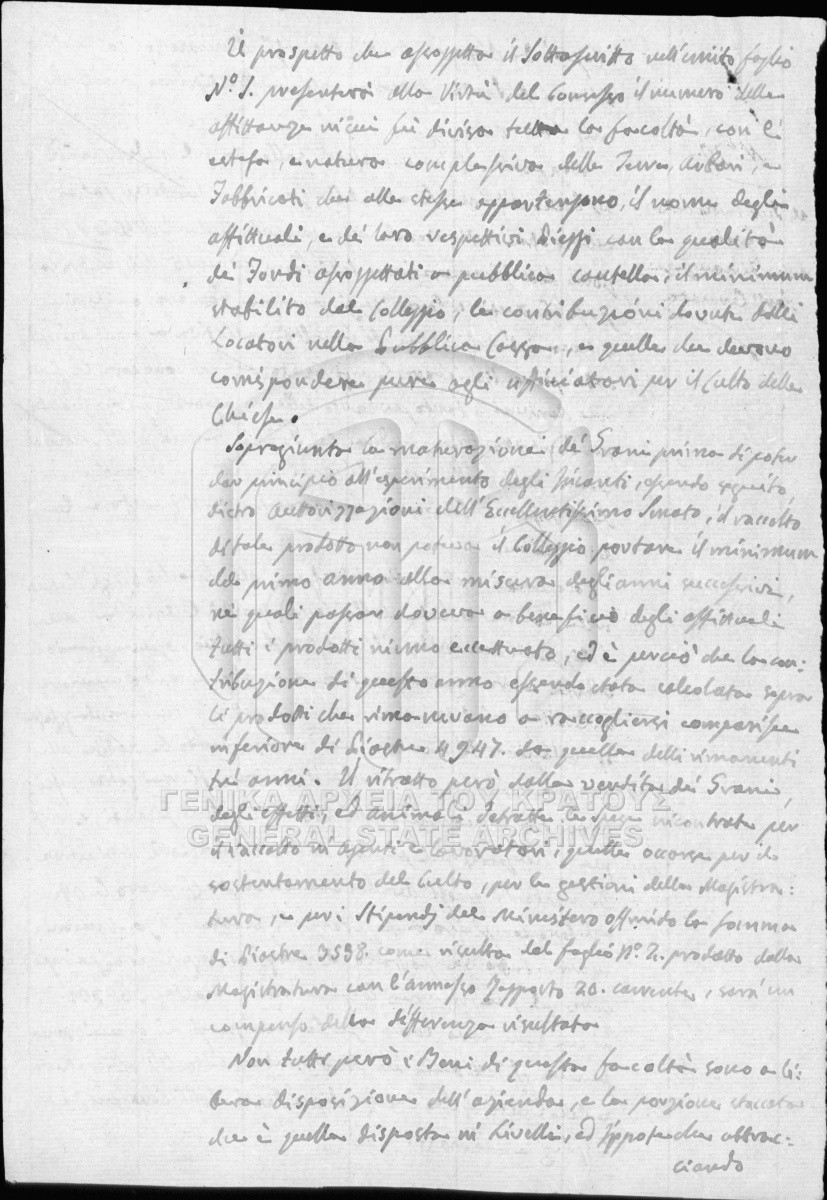 Il prospetto che assoggetta il Sottoscritto nell'unito foglio
N.º 1. presenterà alla Virtù del Consesso il numero delle
affittanze in cui fù divisa tutta la facoltà, con l'
estesa, e natura complessiva delle Terre, Arbori, e
Fabbricati che alle stesse appartengono, il nome degli
affittuali, e de' loro respettivi Pieggi con la qualità
dei Fondi assoggettati a pubblica cautella, il minimum
stabilito dal Colleggio, le contribuzioni dovute dalli
Locatori nella Pubblica Cassa, e quelle che devono
corrispondere pure agli ufficiatori per il Culto delle
Chiese.
Sopragiunta la maturazione de' Grani prima di poter
dar principio all'esperimento degli Incanti, essendo seguito,
dietro autorizzazioni dell'Eccellentissimo Senato, il raccolto
di tale prodotto non poteva il Colleggio portare il minimum
del primo anno alla misura degli anni successivi,
nei quali passar doveva a beneficio degli affittuali
tutti i prodotti niuno eccettuato, ed è perciò che la con:
tribuzione di questo anno essendo stata calcolata sopra
li prodotti che rimanevano a raccogliersi comparisce
inferiore di Piastre 4947. da quella delli rimanenti
trè anni. Il ritratto però dalla vendita dei Grani,
degli effetti, ed animali detratte le spese incontrate per
il raccolto in Agenti e Lavoratori, quelle occorse per il
sostentamento del Culto, per la gestione della Magistra:
tura, e per i Stipendj del Ministero offrindo la somma
di Piastre 3598. come risulta dal foglio N.º 2. prodotto dalla
Magistratura con l'annesso Rapporto 20. corrente, sarà un
compenso della differenza risultata
Non tutti però i Beni di questa facoltà sono a li:
bera disposizione dell'azienda, e la porzione staccata
che è quella disposta in Livelli, ed Ippoteche abbrac:
ciando
ΓΕΝΙΚΑ ΑΡΧΕΙΑ ΤΟΥ ΚΡΑΤΟΥΣ
GENERAL STATE ARCHIVES